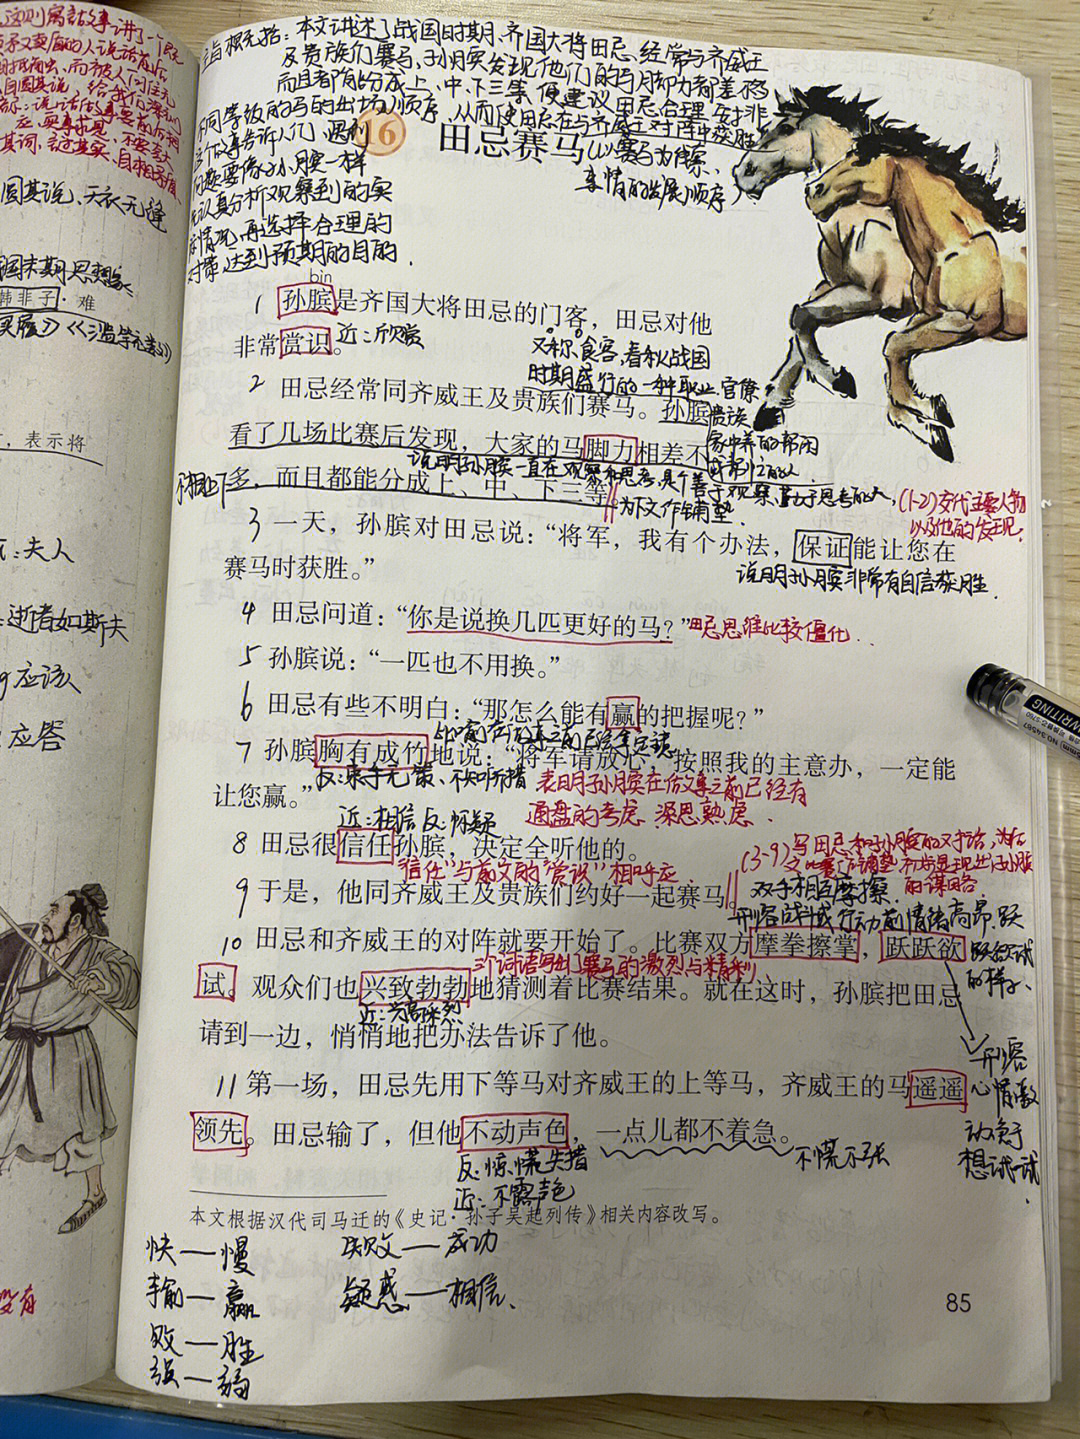 主旨概括：本文讲述了战国时期、齐国大将田忌经常与齐威王
及贵族们赛马，孙膑发现他们的马脚力都差不多
而且都能分成上、中、下三等，便建议田忌合理安排
不同等级的马的出场顺序，从而使田忌在与齐威王对阵中获胜
这个故事告诉人们，遇到
问题要像孙膑一样
认真分析观察到的实
际情况，再选择合理的
对策，达到预期的目的.
16 田忌赛马
(以赛马为线索、
事情的发展顺序)
bìn
1 孙膑是齐国大将田忌的门客，田忌对他
非常赏识。
近：欣赏
又称食客，春秋战国
时期盛行的一种职业.官僚
贵族
家中养的帮闲
2 田忌经常同齐威王及贵族们赛马。孙膑
看了几场比赛后发现，大家的马脚力相差不
多，而且都能分成上、中、下三等。
说明孙膑一直在观察和思考，是个善于观察、勤于思考的人.
为下文作铺垫.
(1-2)交代主要人物
以及他的发现.
3 一天，孙膑对田忌说：“将军，我有个办法，保证能让您在
赛马时获胜。”
说明孙膑非常有自信获胜.
4 田忌问道：“你是说换几匹更好的马？”
田忌思维比较僵化.
5 孙膑说：“一匹也不用换。”
6 田忌有些不明白：“那怎么能有赢的把握呢？”
7 孙膑胸有成竹地说：“将军请放心，按照我的主意办，一定能
让您赢。”
反：束手无策、不知所措
表明孙膑在做事之前已经有
通盘的考虑 深思熟虑.
近：相信 反：怀疑
8 田忌很信任孙膑，决定全听他的。
“信任”与前文的“赏识”相呼应.
(3-9)写田忌和孙膑的对话，为下
9 于是，他同齐威王及贵族们约好一起赛马。
双手相互摩擦.
形容战斗或行动前情绪高昂.跃
跃欲试
的样子、
10 田忌和齐威王的对阵就要开始了。比赛双方摩拳擦掌，跃跃欲
试。观众们也兴致勃勃地猜测着比赛结果。就在这时，孙膑把田忌
请到一边，悄悄地把办法告诉了他。
三个词语写出了赛马的激烈与精彩
近：兴高采烈
形容
心情激
动，急于
想试一试.
11 第一场，田忌先用下等马对齐威王的上等马，齐威王的马遥遥
领先。田忌输了，但他不动声色，一点儿都不着急。
反：惊慌失措
近：不露声色
不慌不张
本文根据汉代司马迁的《史记·孙子吴起列传》相关内容改写。
快—慢 失败—成功
输—赢 疑惑—相信、
败—胜
强—弱
85
圆其说、天衣无缝
国末期思想家
韩非子·难
，表示将
：夫人
逝者如斯夫
应该
应答
没有
WRITING